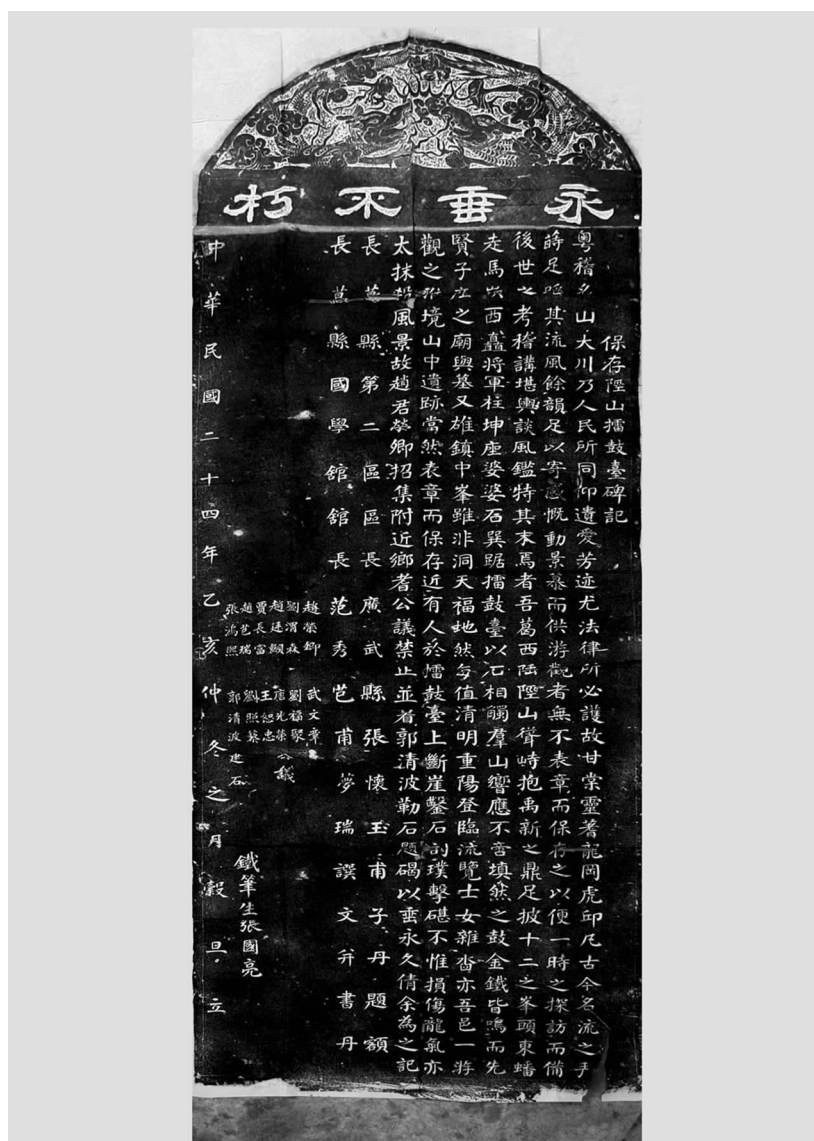 永垂不朽
保存陘山擂鼓臺碑記
粵稽名山大川乃人民所同仰遺愛芳迹尤法律所必護故甘棠靈蓍龍岡虎邱凡古今名流之
蒔足 其流風餘韻足以寄感慨動景慕而供游觀者無不表章而保存之以便一時之探訪而備
後世之考稽講堪輿談風鑑特其末焉者吾葛西陆陘山聳峙抱禹新之鼎足披十二之峯頭東蟠
走馬 西矗將軍柱坤座婆婆石巽踞擂鼓臺以石相觸羣山響應不啻填然之鼓金鐵皆鳴而先
賢子產之廟與墓又雄鎮中峯雖非洞天福地然每值清明重陽登臨流覽士女雜沓亦吾邑一將
觀之 境山中遺跡當然表章而保存近有人於擂鼓臺上斷崖鑿石剖璞擊碪不惟損傷龍氣亦
太抹 風景故趙君榮卿招集附近鄉耆公議禁止並着郭清波勒石題碣以垂永久倩余為之記
長葛縣第二區區長廣武縣張懷玉甫子丹題額
長葛縣國學舘舘長范秀芑甫夢瑞譔文并書丹
趙榮卿 武文章
劉渭森 劉福聚
趙廷 唐先榮 公議
賈長富 王恕忠
趙芑瑞 劉照蔡
張鴻熙 郭清波 建石
鐵筆生張國亮
中華民國二十四年乙亥仲冬之月穀旦立